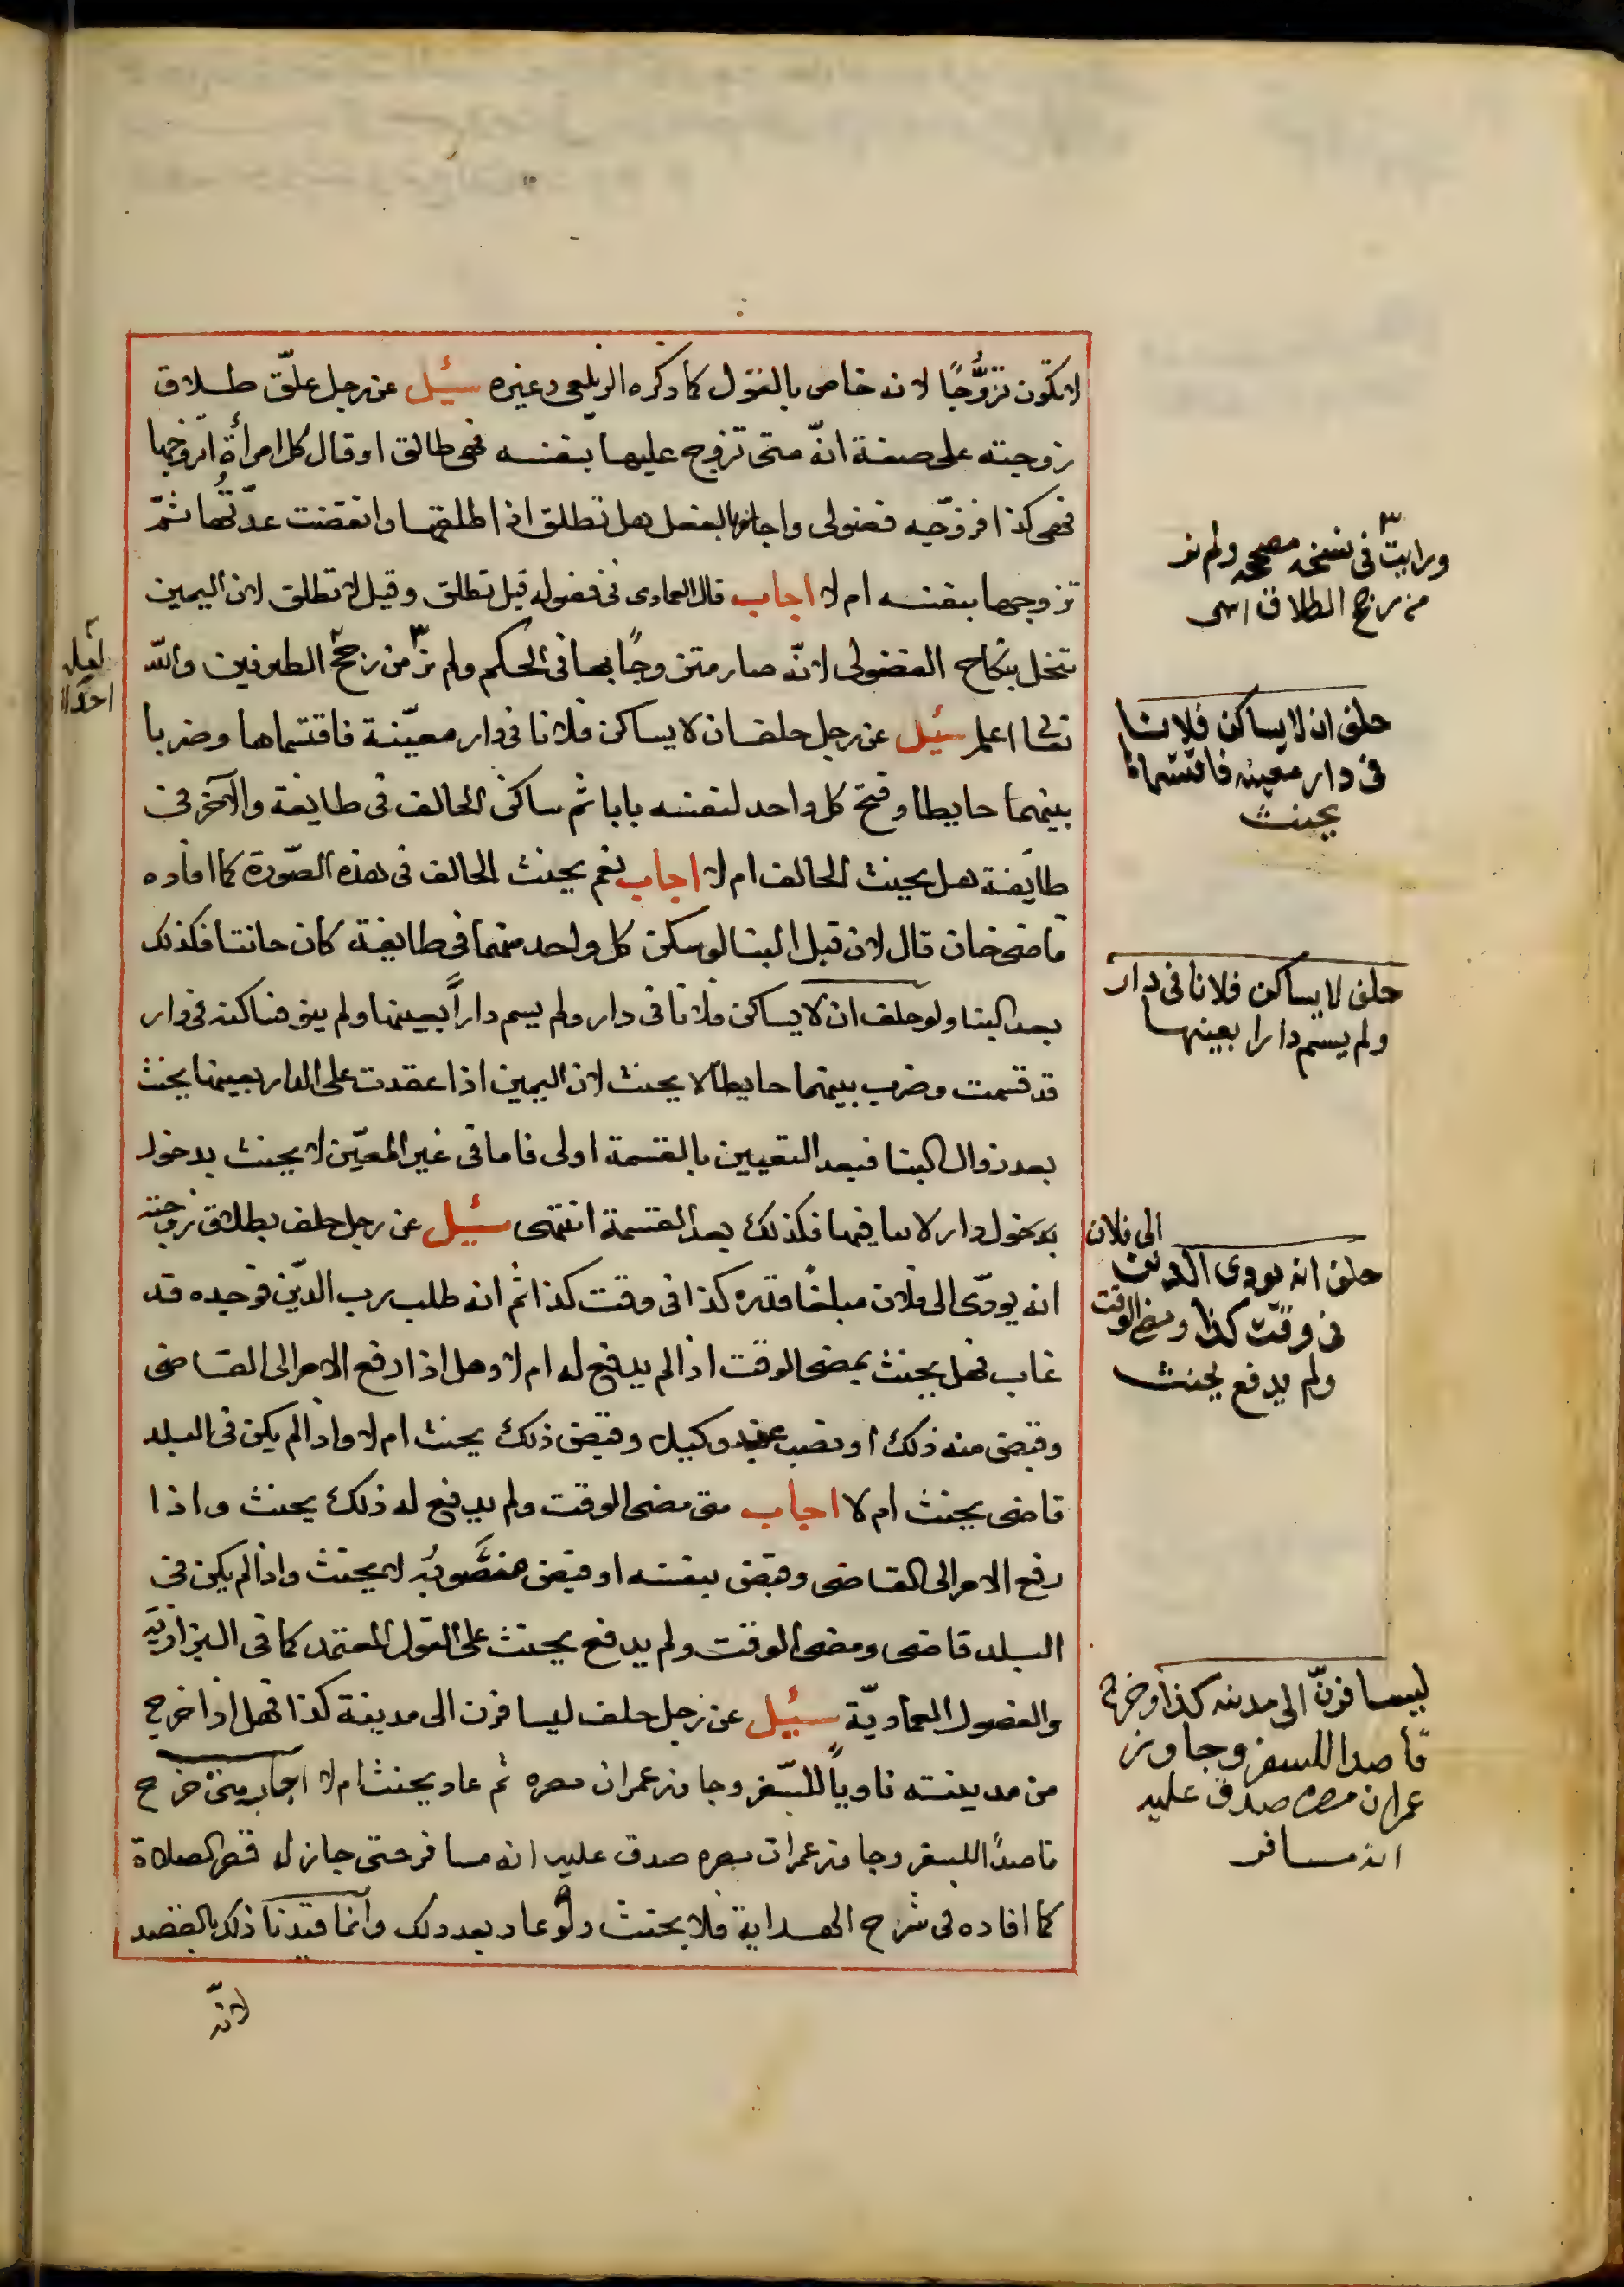 لا تكون تزوُّجًا لانه خاص بالقول كما ذكره الزيلعي وغيره سئيل عن رجل علّق طلاق
زوجته على صفة انّه متى تزوج عليها بنفسه فهى طالق او قال كل امرأة اتزوجها
فهى كذا فزوّجه فضولى واجاز بالفعل هل تطلق اذا طلقها وانقضت عدّتُها ثمّ
تزوجها بنفسه ام لا اجاب قال العمادى فى فصوله قيل تطلق وقيل لا تطلق لان اليمين
تنحل بنكاح الفضولى لانّه صار متزوجًا بها فى الحكم ولم نر من رجح الطرفين والله
تعالى اعلم سئيل عن رجل حلف ان لا يساكن فلانا فى دار معيّنة فاقتسماها وضربا
بينهما حايطا وفتح كل واحد لنفسه بابا ثم ساكن الحالف فى طايفة والآخر فى
طايفة هل يحنث الحالف ام لا اجاب نعم يحنث الحالف فى هذه الصّورة كما افاده
قاضى خان قال لان قبل البنا لو سكن كل واحد منهما فى طايفة كان حانثا فكذلك
بعد البنا ولو حلف ان لا يساكن فلانا فى دار ولم يسم داراً بعينها ولم ينو فساكنه فى دار
قد قسمت وضرب بينهما حايطا لا يحنث لان اليمين اذا عقدت على الدار بعينها يحنث
بعد زوال البنا فبعد التعيين بالقسمة اولى فاما فى غير المعيّن لا يحنث بدخول
بدخول دار لا بنا فيها فكذلك بعد القسمة انتهى سئيل عن رجل حلف بطلاق زوجته
انه يودّى الى فلان مبلغًا قدره كذا فى وقت كذا ثم انه طلب رب الدّين فوجده قد
غاب فهل يحنث بمضى الوقت اذا لم يدفع له ام لا وهل اذا رفع الامر الى القاضى
وقبض منه ذلك او نصب عنه وكيل وقبض ذلك يحنث ام لا واذا لم يكن فى البلد
قاضى يحنث ام لا اجاب متى مضى الوقت ولم يدفع له ذلك يحنث واذا
رفع الامر الى القاضى وقبض بنفسه او قبض منصوبُه لا يحنث واذا لم يكن فى
البلد قاضى ومضى الوقت ولم يدفع يحنث على القول المعتمد كما فى البزازيّه
والفصول العماديّة سئيل عن رجل حلف ليسافرن الى مدينة كذا فهل اذا خرج
من مدينته ناوياً للسّفر وجاوز عمران مصره ثم عاد يحنث ام لا اجاب متى خرج
قاصدًا للسفر وجاوز عمران مصره صدق عليه انه مسافر حتى جاز له قصر الصلاة
كما افاده فى شرح الهداية فلا يحنث ولو عاد بعد ذلك وانما قيّدنا ذلك بالقصد
لانّه
ورايت فى نسخه مصححه ولم نر
من رجح الطلاق انتهى
حلف ان لا يساكن فلانا
فى دار معينه فاقتسماها
يحنث
حلف لا يساكن فلانا فى دار
ولم يسم دارا بعينها
حلف انه يودى الدين الى فلان
فى وقت كذا ومضى الوقت
ولم يدفع يحنث
ليسافرنّ الى مدينه كذا وخرج
قاصدا للسفر وجاوز
عمران مصره صدق عليه
انه مسافر
لعله